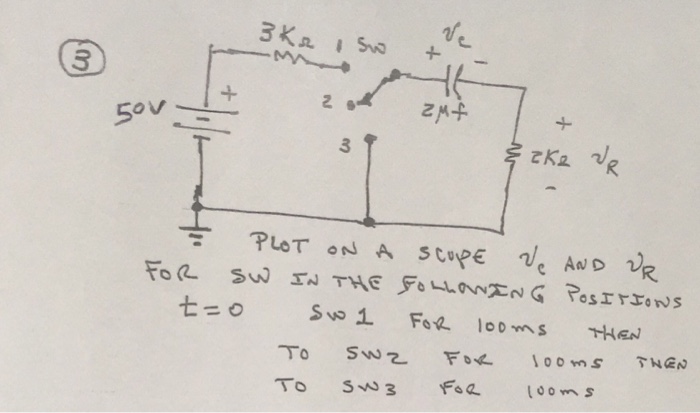 3
3KΩ 1 SW
+ Vc -
50V
+
2
2μf
3
+
2KΩ VR
-
PLOT ON A SCOPE Vc AND VR
FOR SW IN THE FOLLOWING POSITIONS
t=0 SW1 FOR 100ms THEN
TO SW2 FOR 100ms THEN
TO SW3 FOR 100ms